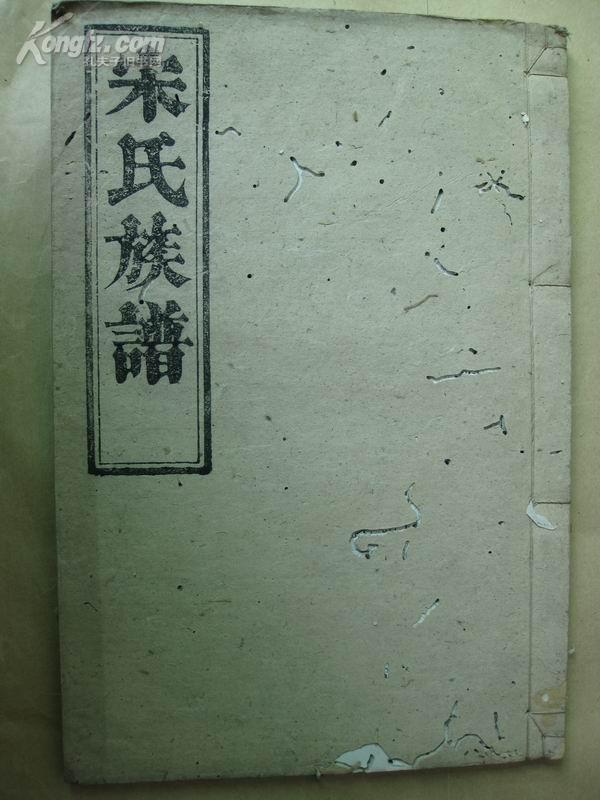 Kongfz.com
孔夫子旧书网
氏族譜